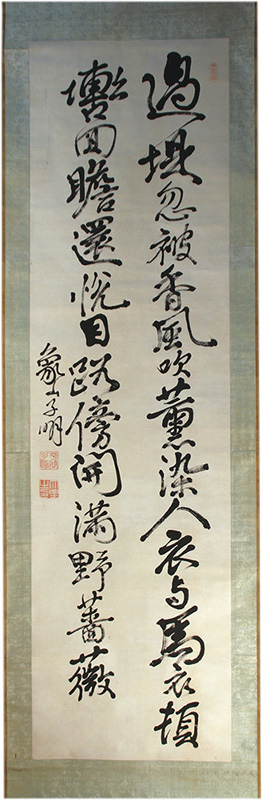 過堤忽被香風吹薫染人衣与馬衣頓
轡回瞻還悦目路傍開満野薔薇
象山子明